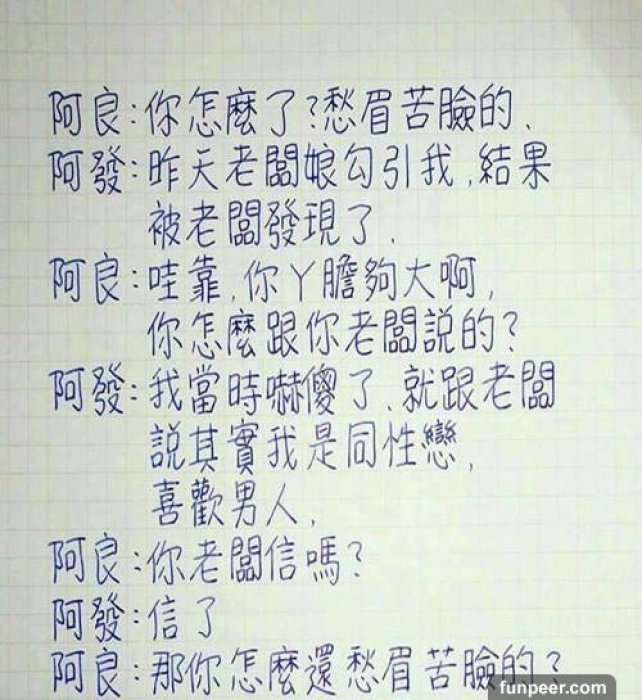 阿良:你怎麼了?愁眉苦臉的.
阿發:昨天老闆娘勾引我,結果
被老闆發現了.
阿良:哇靠,你丫膽夠大啊,
你怎麼跟你老闆說的?
阿發:我當時嚇傻了、就跟老闆
說其實我是同性戀,
喜歡男人,
阿良:你老闆信嗎?
阿發:信了
阿良:那你怎麼還愁眉苦臉的?
funpeer.com